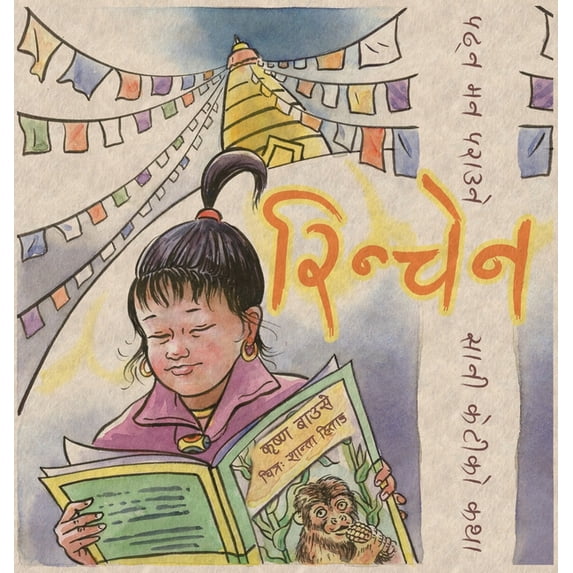 रिन्चेन
पढ्न मन पराउने सानी केटीको कथा
कृष्ण बाउसे
चित्र: शान्ता हिताङ